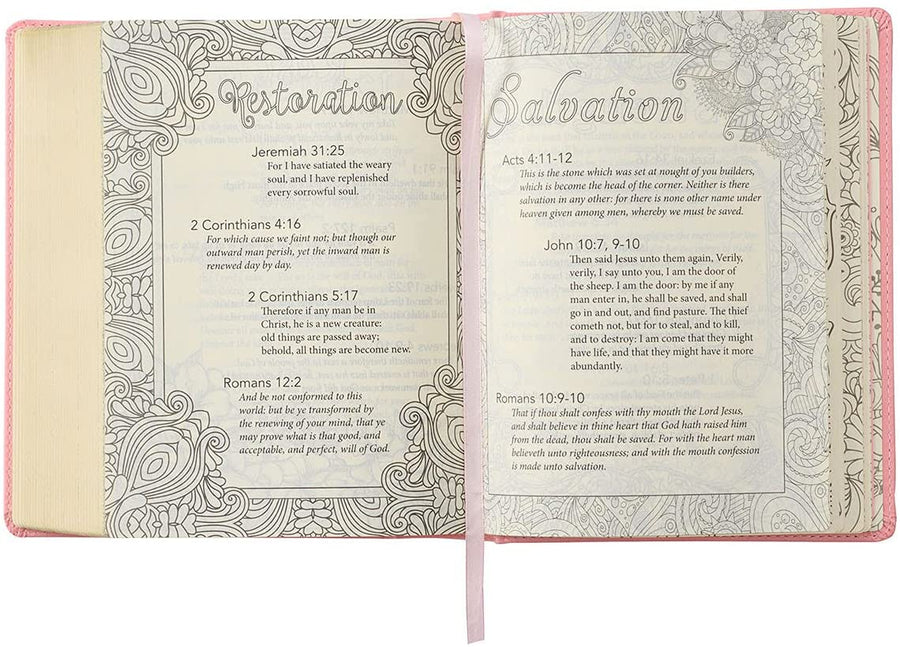 Restoration
Jeremiah 31:25
For I have satiated the weary
soul, and I have replenished
every sorrowful soul.
2 Corinthians 4:16
For which cause we faint not; but though our
outward man perish, yet the inward man is
renewed day by day.
2 Corinthians 5:17
Therefore if any man be in
Christ, he is a new creature:
old things are passed away;
behold, all things are become new.
Romans 12:2
And be not conformed to this
world: but be ye transformed by
the renewing of your mind, that ye
may prove what is that good, and
acceptable, and perfect, will of God.
Salvation
Acts 4:11-12
This is the stone which was set at nought of you builders,
which is become the head of the corner. Neither is there
salvation in any other: for there is none other name under
heaven given among men, whereby we must be saved.
John 10:7, 9-10
Then said Jesus unto them again, Verily,
verily, I say unto you, I am the door of
the sheep. I am the door: by me if any
man enter in, he shall be saved, and shall
go in and out, and find pasture. The thief
cometh not, but for to steal, and to kill,
and to destroy: I am come that they might
have life, and that they might have it more
abundantly.
Romans 10:9-10
That if thou shalt confess with thy mouth the Lord Jesus,
and shalt believe in thine heart that God hath raised him
from the dead, thou shalt be saved. For with the heart man
believeth unto righteousness; and with the mouth confession
is made unto salvation.